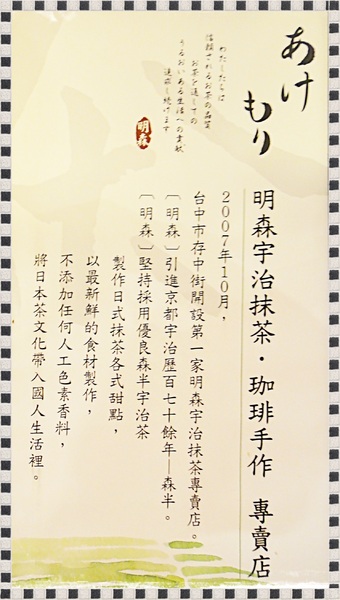 あけ
もり
わたしたちは
信頼されるお茶の品質
お茶を通しての
うるおいある生活への貢献
追求し続けます
明森
明森宇治抹茶・珈琲手作 專賣店
2007年10月，
台中市存中街開設第一家明森宇治抹茶專賣店。
〔明森〕引進京都宇治歷百七十餘年—森半。
〔明森〕堅持採用優良森半宇治茶
製作日式抹茶各式甜點，
以最新鮮的食材製作，
不添加任何人工色素香料，
將日本茶文化帶入國人生活裡。